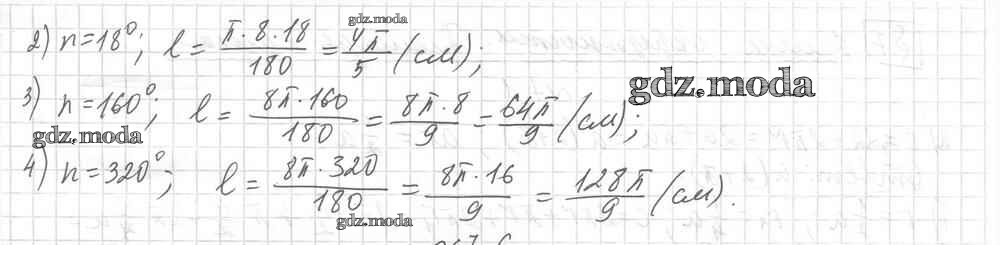 gdz.moda
2) n=18°; l = π·8·18/180 = 4π/5 (см);
gdz.moda
3) n=160°; l = 8π·160/180 = 8π·8/9 = 64π/9 (см);
gdz.moda
4) n=320°; l = 8π·320/180 = 8π·16/9 = 128π/9 (см).
gdz.moda